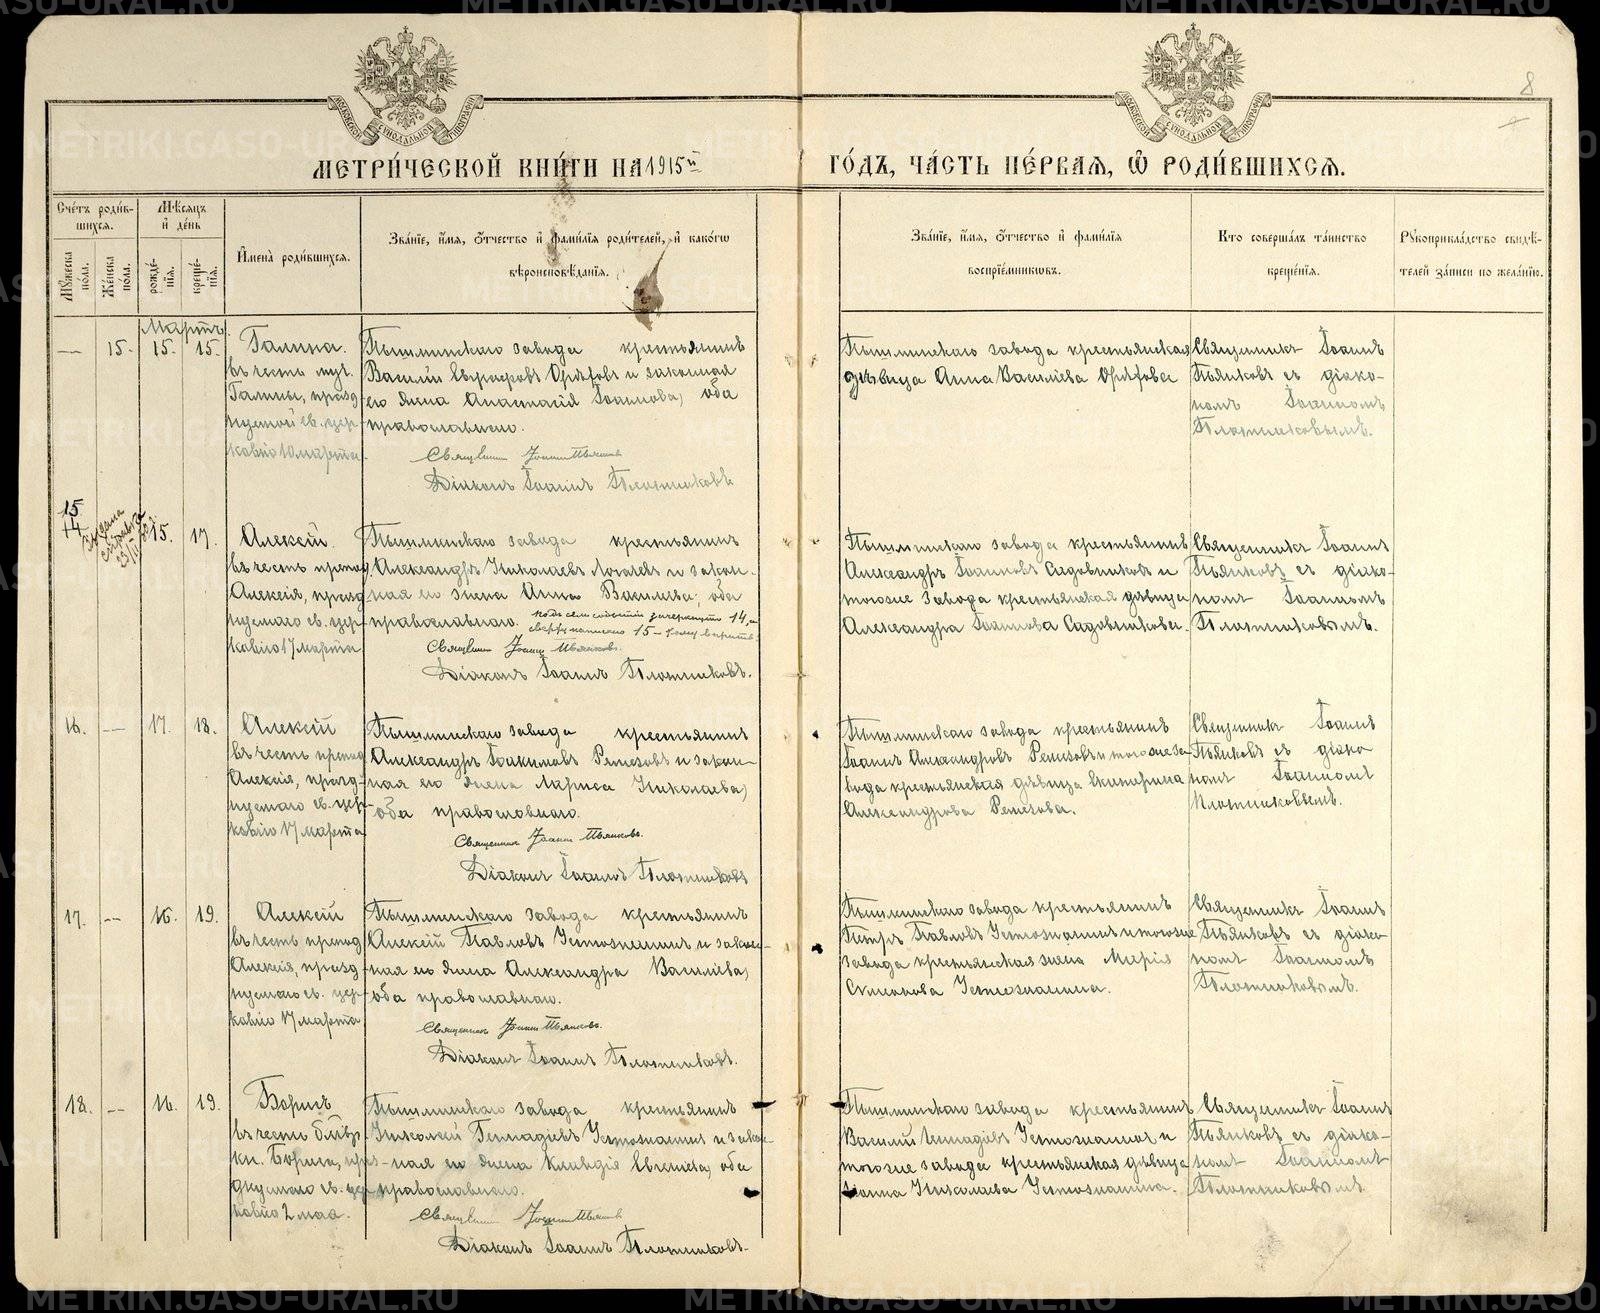 8
МЕТРИ́ЧЕСКОЙ КНИ́ГИ НА 1915й ГО́ДЪ, ЧА́СТЬ ПЕ́РВАЯ, Ѡ РОДИ́ВШИХСЯ.
Счéтъ роди́в-
шихся.
Мѣ́сяцъ
и дéнь
Мꙋ́жеска пóла.
Жéнска пóла.
рождé-
нїя.
крещé-
нїя.
Именà роди́вшихся.
Звáнїе, и́мя, ѻ́тчество и фами́лїя роди́телей, и какóгѡ
вѣроисповѣ́данїя.
Звáнїе, и́мя, ѻ́тчество и фами́лїя
воспрїéмникѡвъ.
Кто совершáлъ тáинство
крещéнїя.
Рꙋкоприклáдство свидѣ́-
телей зáписи по желáнїю.
Мартъ.
— 15. 15. 15.
Галина.
въ честь муч.
Галины, празд-
нуемой св. цер-
ковію 10 марта.
Пышминскаго завода крестьянинъ
Василій Евграфовъ Орѣховъ и законная
его жена Анастасія Іоаннова, оба
православнаго.
Священник Іоанн Пьянков
Діаконъ Іоаннъ Плотниковъ
Пышминскаго завода крестьянская
дѣвица Анна Василіева Орѣхова
Священникъ Іоаннъ
Пьянковъ съ діако-
номъ Іоанномъ
Плотниковымъ.
15
14
Выдана
справка
15. 17.
Алексій.
въ честь препод.
Алексія, празд-
нуемаго св. цер-
ковію 17 марта
Пышминскаго завода крестьянинъ
Александръ Николаевъ Логачевъ и закон-
ная его жена Анна Васильева, оба
православнаго.
зачеркнуто 14, и
сверху написано 15 – тому вѣрить.
Священник Іоанн Пьянковъ.
Діаконъ Іоаннъ Плотниковъ.
Пышминскаго завода крестьянинъ
Александръ Іоанновъ Садовниковъ и
тогоже завода крестьянская дѣвица
Александра Іоаннова Садовникова.
Священникъ Іоаннъ
Пьянковъ съ діако-
номъ Іоанномъ
Плотниковымъ.
16. — 17. 18.
Алексій
въ честь препод
Алексія, празд-
нуемаго св. цер-
ковію 17 марта
Пышминскаго завода крестьянинъ
Александръ Іоакимовъ Ремезовъ и закон-
ная его жена Лариса Николаева,
оба православнаго.
Священник Іоанн Пьянковъ.
Діаконъ Іоаннъ Плотниковъ
Пышминскаго завода крестьянинъ
Іоаннъ Александровъ Ремезовъ и тогоже за-
вода крестьянская дѣвица Екатерина
Александрова Ремезова.
Священникъ Іоаннъ
Пьянковъ съ діако
номъ Іоанномъ
Плотниковымъ.
17. — 16. 19.
Алексій
въ честь препод
Алексія, празд-
нуемаго св. цер-
ковію 17 марта
Пышминскаго завода крестьянинъ
Алексій Павловъ Устюжанинъ и закон-
ная его жена Александра Василіева,
оба православнаго.
Священникъ Іоанн Пьянковъ.
Діаконъ Іоаннъ Плотниковъ.
Пышминскаго завода крестьянинъ
Петръ Павловъ Устюжанинъ и тогоже
завода крестьянская жена Марія
Симонова Устюжанина.
Священникъ Іоаннъ
Пьянковъ съ діако
номъ Іоанномъ
Плотниковымъ.
18. — 16. 19.
Борисъ
въ честь благов.
кн. Бориса, праз-
днуемаго св. цер
ковію 2 мая.
Пышминскаго завода крестьянинъ
Николай Геннадіевъ Устюжанинъ и закон-
ная его жена Клавдія Евгеніева, оба
православнаго.
Священник Іоанн Пьянков
Діаконъ Іоаннъ Плотниковъ.
Пышминскаго завода крестьянинъ
Василій Геннадіевъ Устюжанинъ и
тогоже завода крестьянская дѣвица
Іоанна Николаева Устюжанина.
Священникъ Іоаннъ
Пьянковъ съ діако-
номъ Іоанномъ
Плотниковымъ.
METRIKI.GASO-URAL.RU